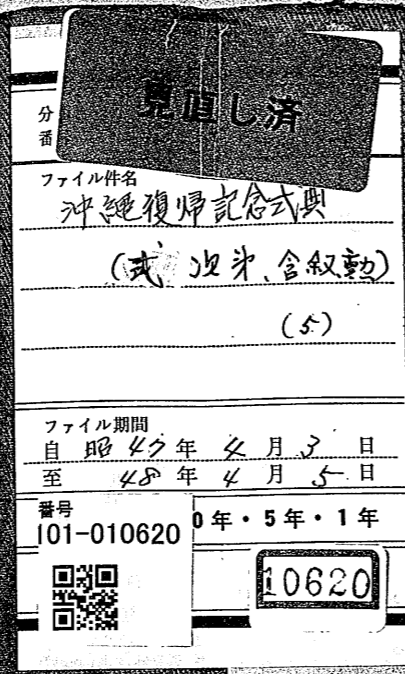 見直し済
分
番
ファイル件名
沖縄復帰記念式典
(式次第、含叙勲)
(5)
ファイル期間
自 昭 47 年 4 月 3 日
至 48 年 4 月 5 日
番号
101-010620
0年・5年・1年
10620